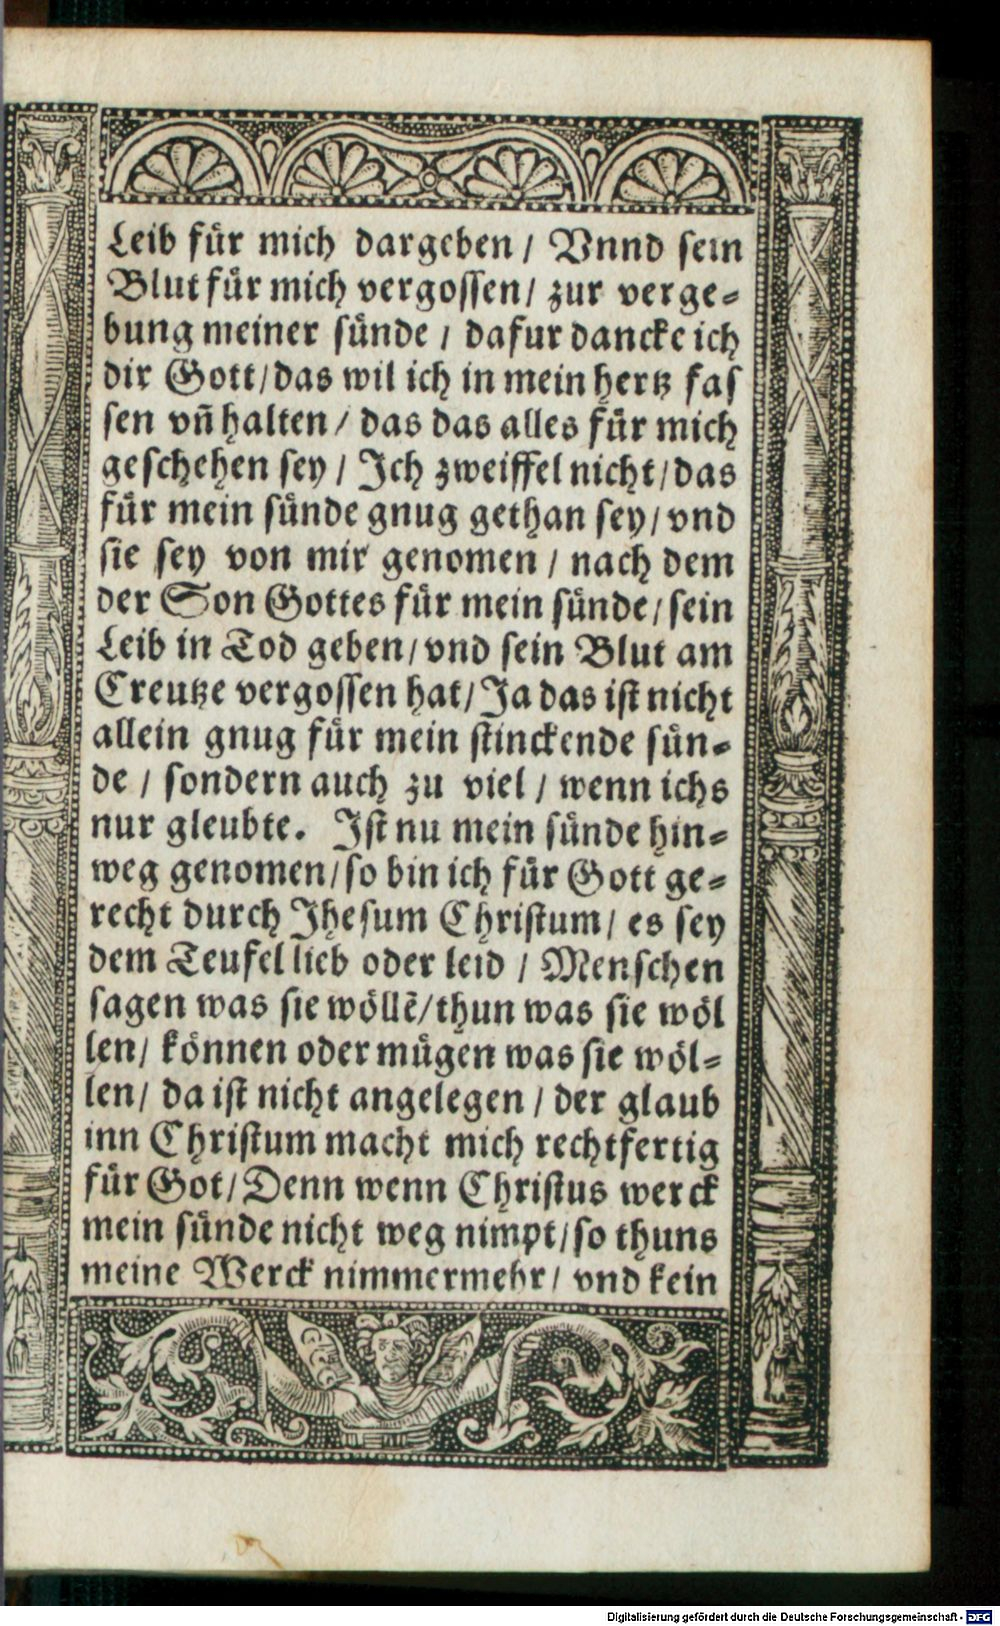 Leib für mich dargeben / Vnnd sein
Blut für mich vergossen / zur verge⸗
bung meiner sünde / dafur dancke ich
dir Gott / das wil ich in mein hertz fas
sen vñ halten / das das alles für mich
geschehen sey / Ich zweiffel nicht / das
für mein sünde gnug gethan sey / vnd
sie sey von mir genomen / nach dem
der Son Gottes für mein sünde / sein
Leib in Tod geben / vnd sein Blut am
Creutze vergossen hat / Ja das ist nicht
allein gnug für mein stinckende sün⸗
de / sondern auch zu viel / wenn ichs
nur gleubte. Ist nu mein sünde hin⸗
weg genomen / so bin ich für Gott ge⸗
recht durch Jhesum Christum / es sey
dem Teufel lieb oder leid / Menschen
sagen was sie wöllē / thun was sie wöl
len / können oder mügen was sie wöl⸗
len / da ist nicht angelegen / der glaub
inn Christum macht mich rechtfertig
für Got / Denn wenn Christus werck
mein sünde nicht weg nimpt / so thuns
meine Werck nimmermehr / vnd kein
Digitalisierung gefördert durch die Deutsche Forschungsgemeinschaft - DFG